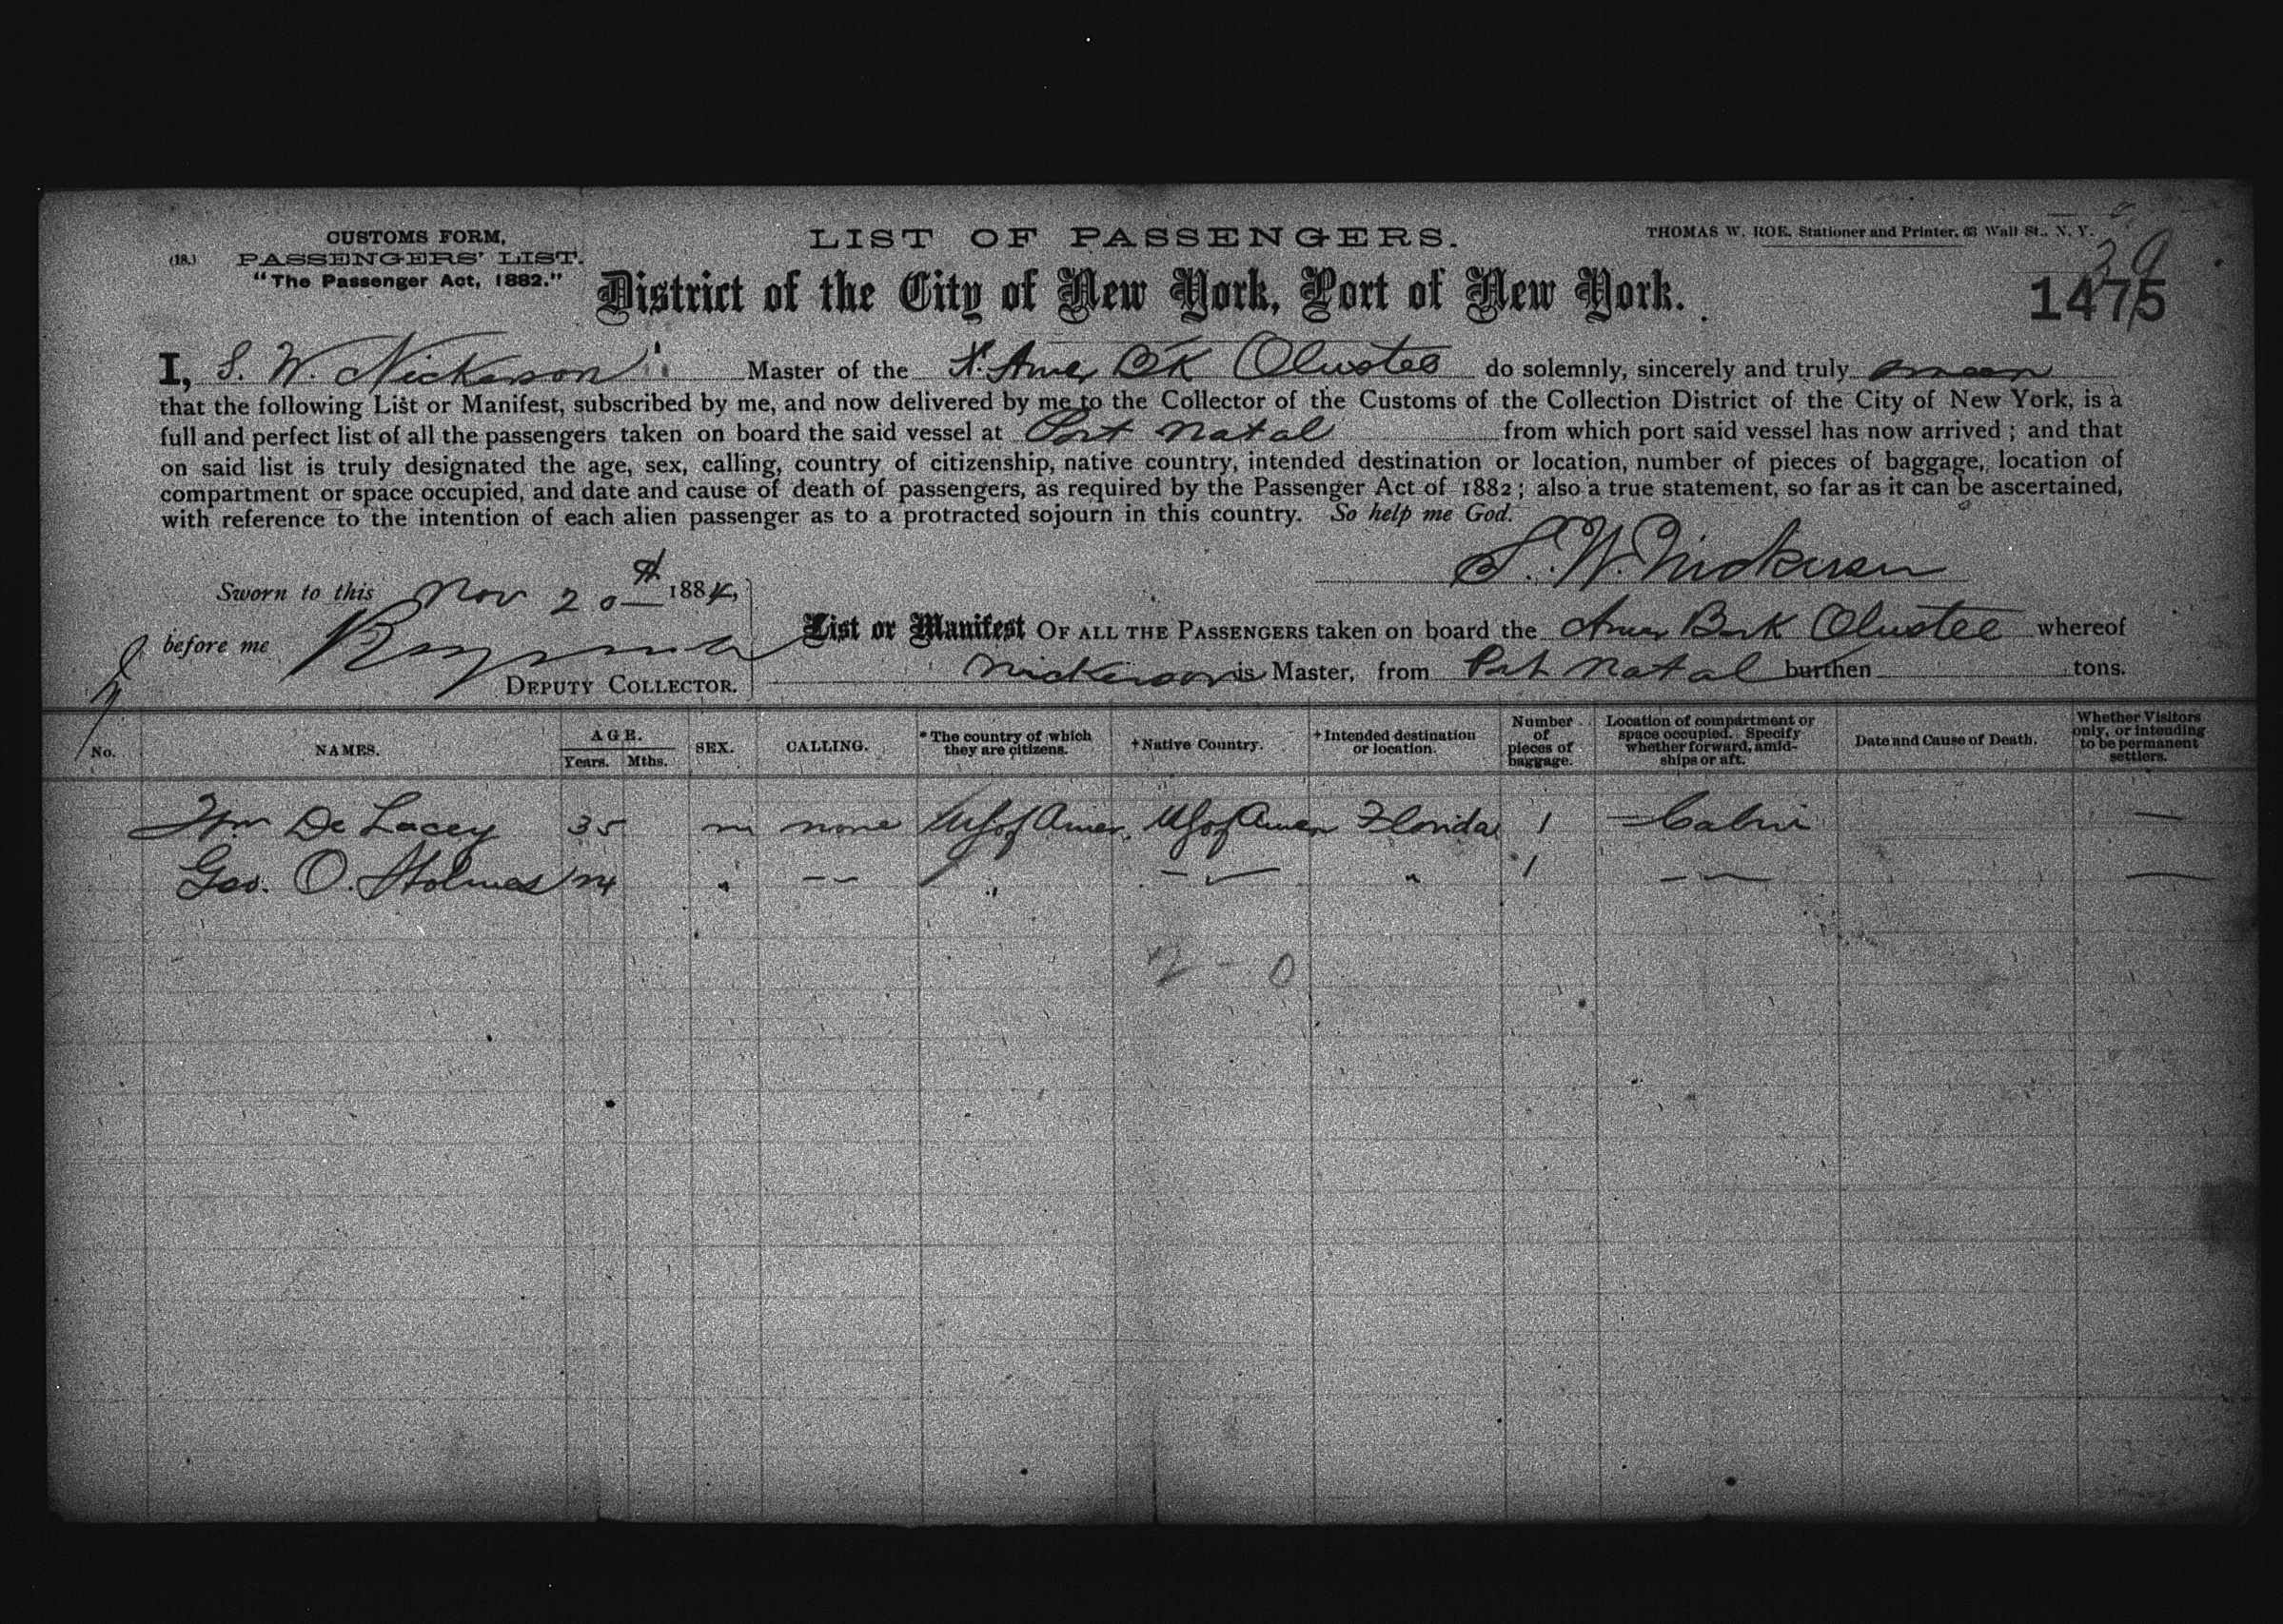 CUSTOMS FORM,
(18.) PASSENGERS' LIST.
"The Passenger Act, 1882."
LIST OF PASSENGERS.
THOMAS W. ROE. Stationer and Printer. 63 Wall St., N. Y.
39
District of the City of New York, Port of New York.
1475
I, S. W. Nickerson Master of the Amer Bk Olustee do solemnly, sincerely and truly swear
that the following List or Manifest, subscribed by me, and now delivered by me to the Collector of the Customs of the Collection District of the City of New York, is a
full and perfect list of all the passengers taken on board the said vessel at Port Natal from which port said vessel has now arrived ; and that
on said list is truly designated the age, sex, calling, country of citizenship, native country, intended destination or location, number of pieces of baggage, location of
compartment or space occupied, and date and cause of death of passengers, as required by the Passenger Act of 1882 ; also a true statement, so far as it can be ascertained,
with reference to the intention of each alien passenger as to a protracted sojourn in this country. So help me God.
S. W. Nickerson
Sworn to this Nov 20th 1884,
before me
DEPUTY COLLECTOR.
List or Manifest OF ALL THE PASSENGERS taken on board the Amer Bark Olustee whereof
Nickerson is Master, from Port Natal burthen tons.
No. NAMES. AGE. Years. Mths. SEX. CALLING. *The country of which they are citizens. †Native Country. †Intended destination or location. Number of pieces of baggage. Location of compartment or space occupied. Specify whether forward, amidships or aft. Date and Cause of Death. Whether Visitors only, or intending to be permanent settlers.
Wm De Lacey 35 m none US of Amer. US of Amer Florida 1 Cabin —
Geo. O. Holmes 24 " -- " -- " 1 -- —
2 - 0